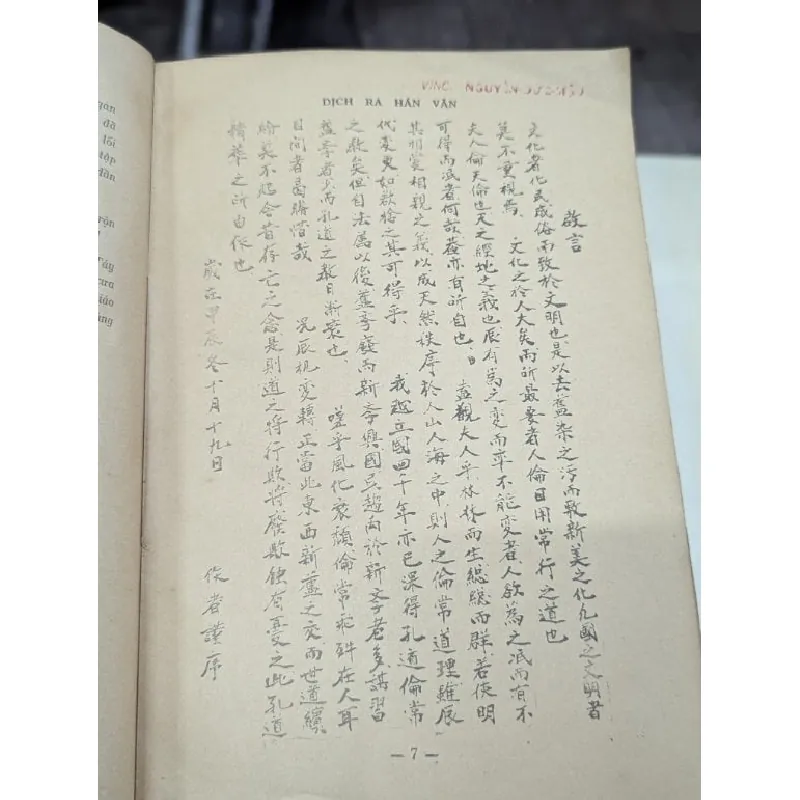 gàn
đã
lối
tập
Hán
Tây
giáo
NGUYỄN
DỊCH RA HÁN VĂN
啟言
文化者化民成俗而致於文明也是以去舊染之污而致新美之化凡國之文明者
莫不重視焉 文化之於人大矣而所最要者人倫日用常行之道也
夫人倫天倫也天之經地之義也辰有為之變而卒不能變者人欲為之泯而有不
可得而泯者何哉蓋亦有所自也 盍觀夫人乎林林而生總總而群若使明
其相愛相親之義以成天然秩序於人山人海之中則人之倫常道理雖辰
代變更如欲捨之其可得乎 我越立國四千年亦已深得孔道倫常
之教矣但自法属以後舊學廢而新學興國民趨向於新學者多講習
舊學者少而孔道之教日漸衰也 嗟乎風化衰頹倫常乖舛在人耳
目間者曷勝惜哉 況辰机變轉正當此東西新舊之交而世道
莫不起今昔存亡之念是則道之將行欺將廢欺有憂之此孔道
精華之所由作也
歲在甲辰冬十月十九日
作者謹序
— 7 —